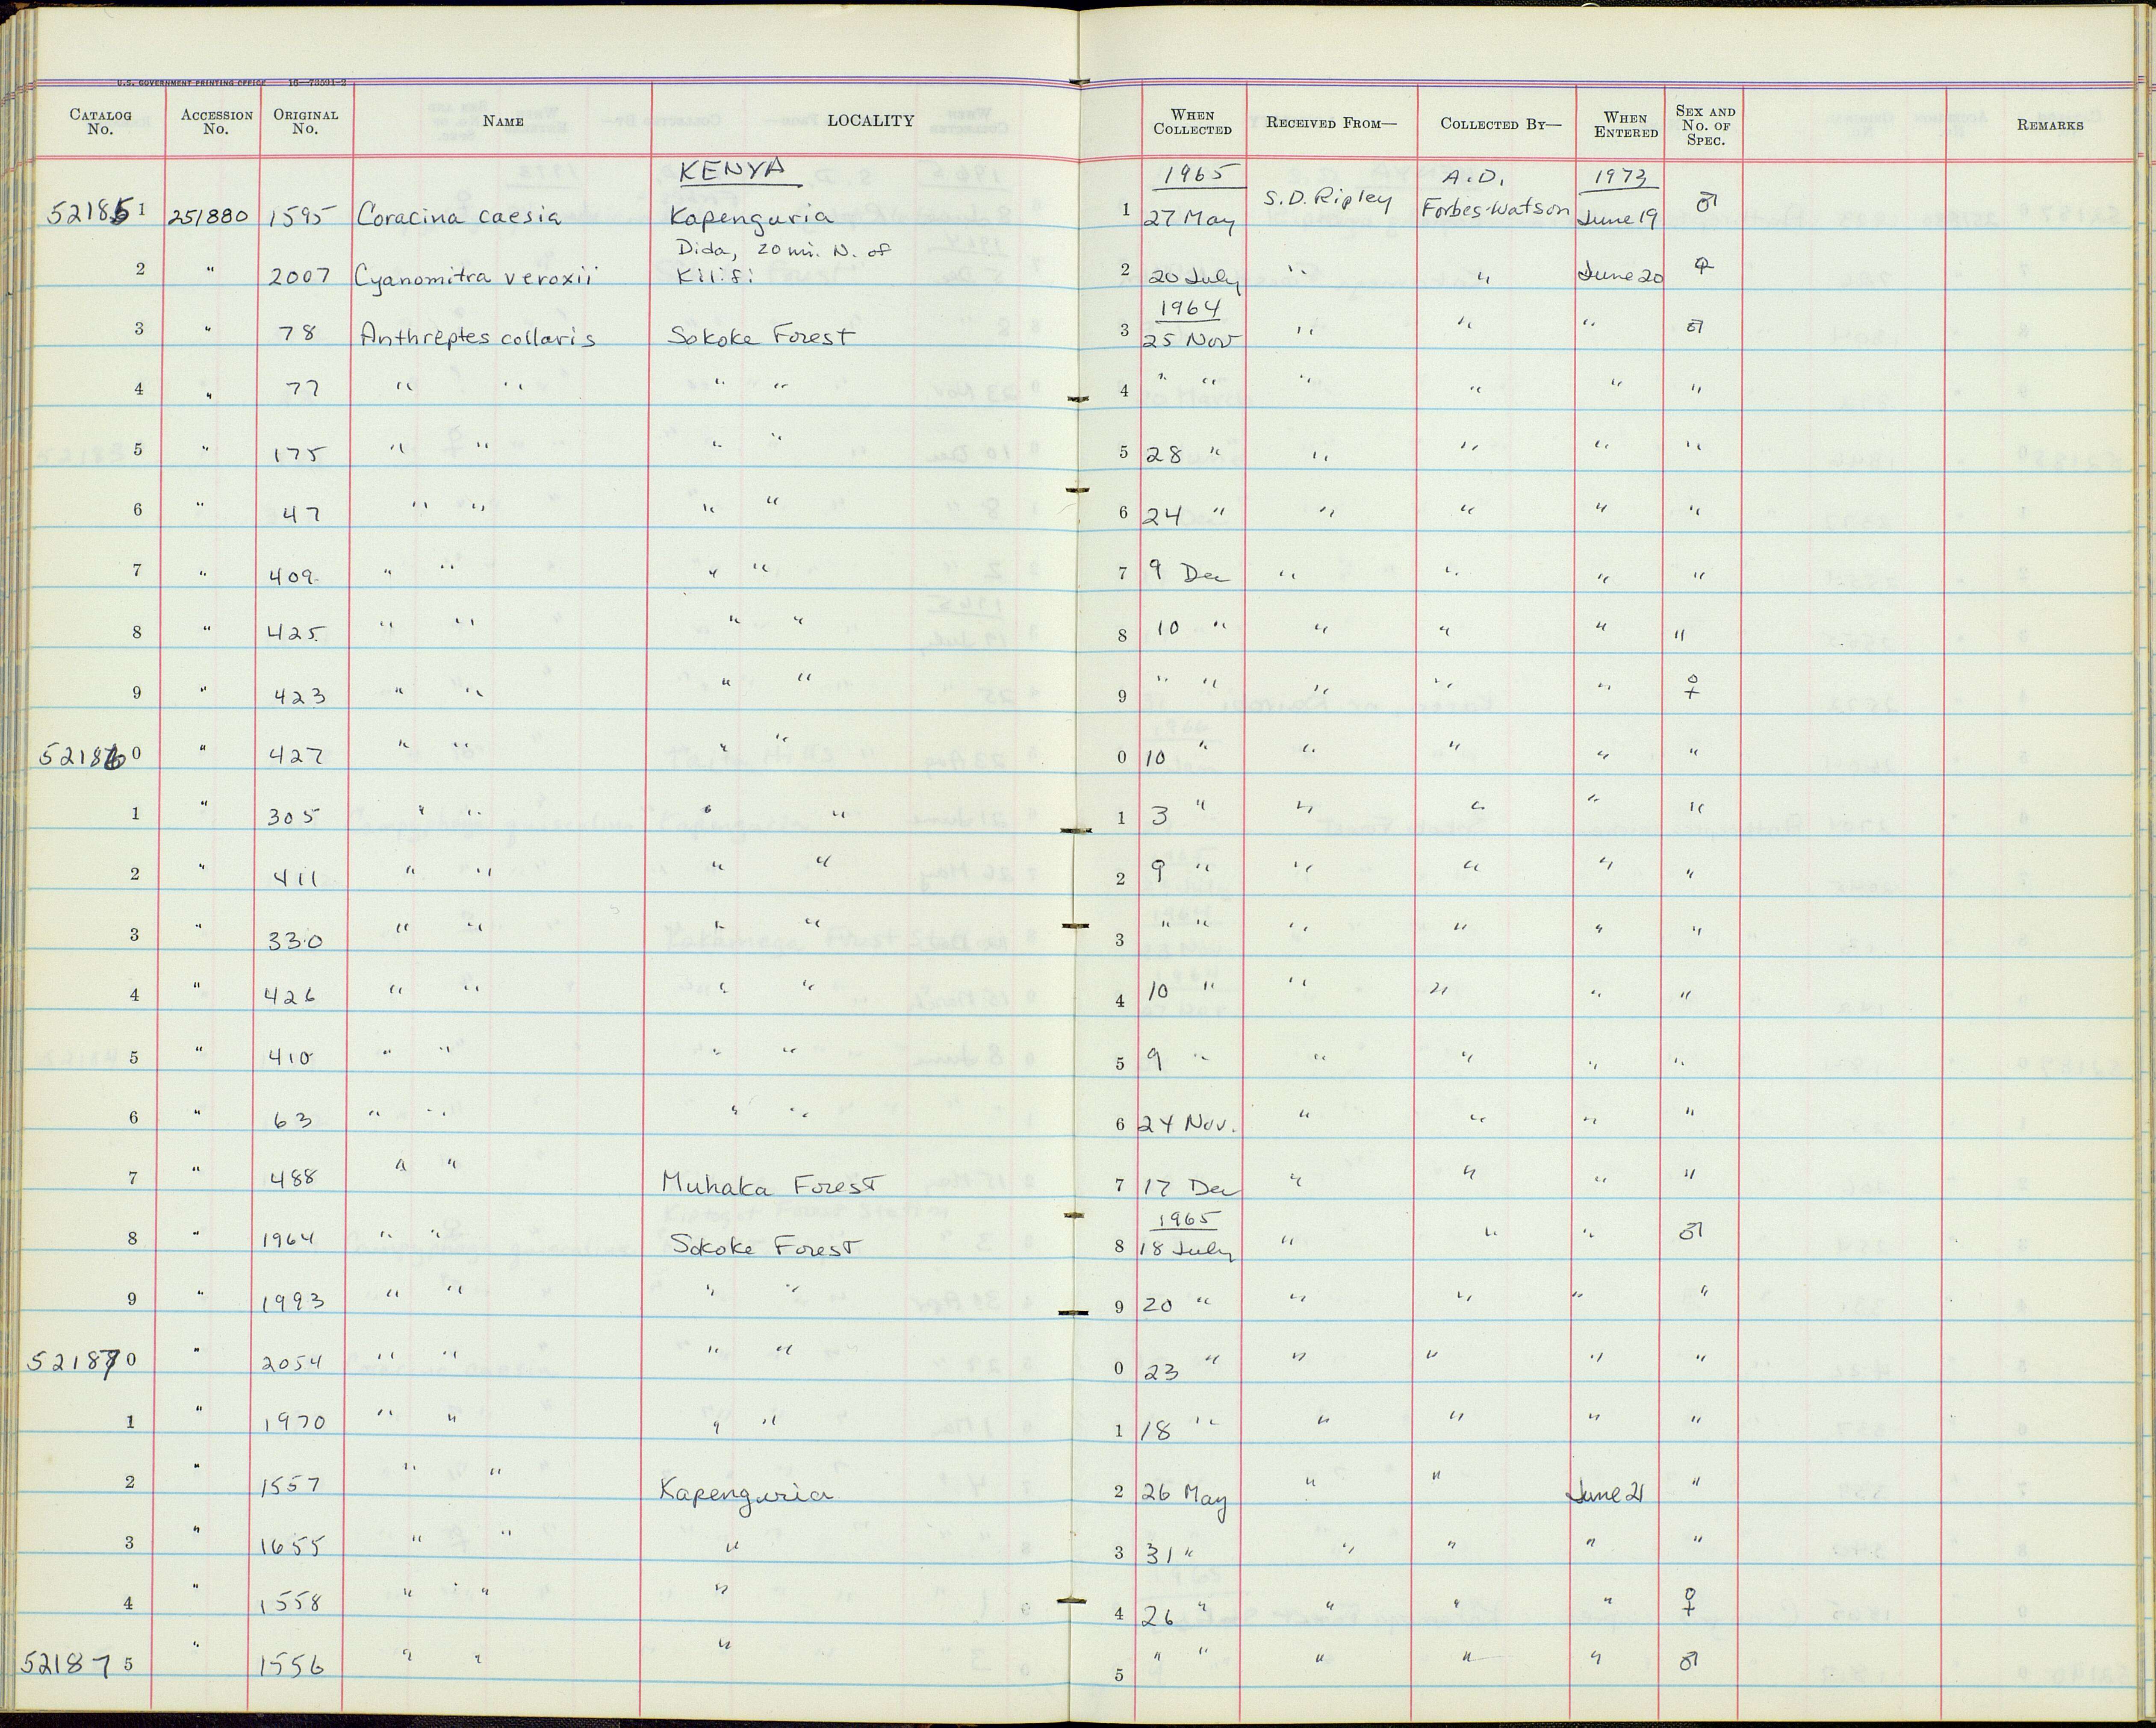 U.S. GOVERNMENT PRINTING OFFICE 16—73591-2
CATALOG No. ACCESSION No. ORIGINAL No. NAME LOCALITY WHEN COLLECTED RECEIVED FROM— COLLECTED BY— WHEN ENTERED SEX AND No. OF SPEC. REMARKS
KENYA 1965 A.D. 1973
521851 251880 1595 Coracina caesia Kapenguria 1 27 May S.D. Ripley Forbes-Watson June 19 ♂
Dida, 20 mi. N. of
2 " 2007 Cyanomitra veroxii Kilifi 2 20 July " " June 20 ♀
1964
3 " 78 Anthreptes collaris Sokoke Forest 3 25 Nov " " " ♂
4 " 77 " " " " 4 " " " " " "
5 " 175 " " " " 5 28 " " " " "
6 " 47 " " " " 6 24 " " " " "
7 " 409 " " " " 7 9 Dec " " " "
8 " 425 " " " " 8 10 " " " " "
9 " 423 " " " " 9 " " " " " ♀
521860 " 427 " " " " 0 10 " " " " "
1 " 305 " " " " 1 3 " " " " "
2 " 411 " " " " 2 9 " " " " "
3 " 330 " " " " 3 " " " " " "
4 " 426 " " " " 4 10 " " " " "
5 " 410 " " " " 5 9 " " " " "
6 " 63 " " " " 6 24 Nov. " " " "
7 " 488 " " Muhaka Forest 7 17 Dec " " " "
1965
8 " 1964 " " Sokoke Forest 8 18 July " " " ♂
9 " 1993 " " " " 9 20 " " " " "
521870 " 2054 " " " " 0 23 " " " " "
1 " 1970 " " " " 1 18 " " " " "
2 " 1557 " " Kapenguria 2 26 May " " June 21 "
3 " 1655 " " " 3 31 " " " " "
4 " 1558 " " " 4 26 " " " " ♀
521875 " 1556 " " " 5 " " " " " ♂